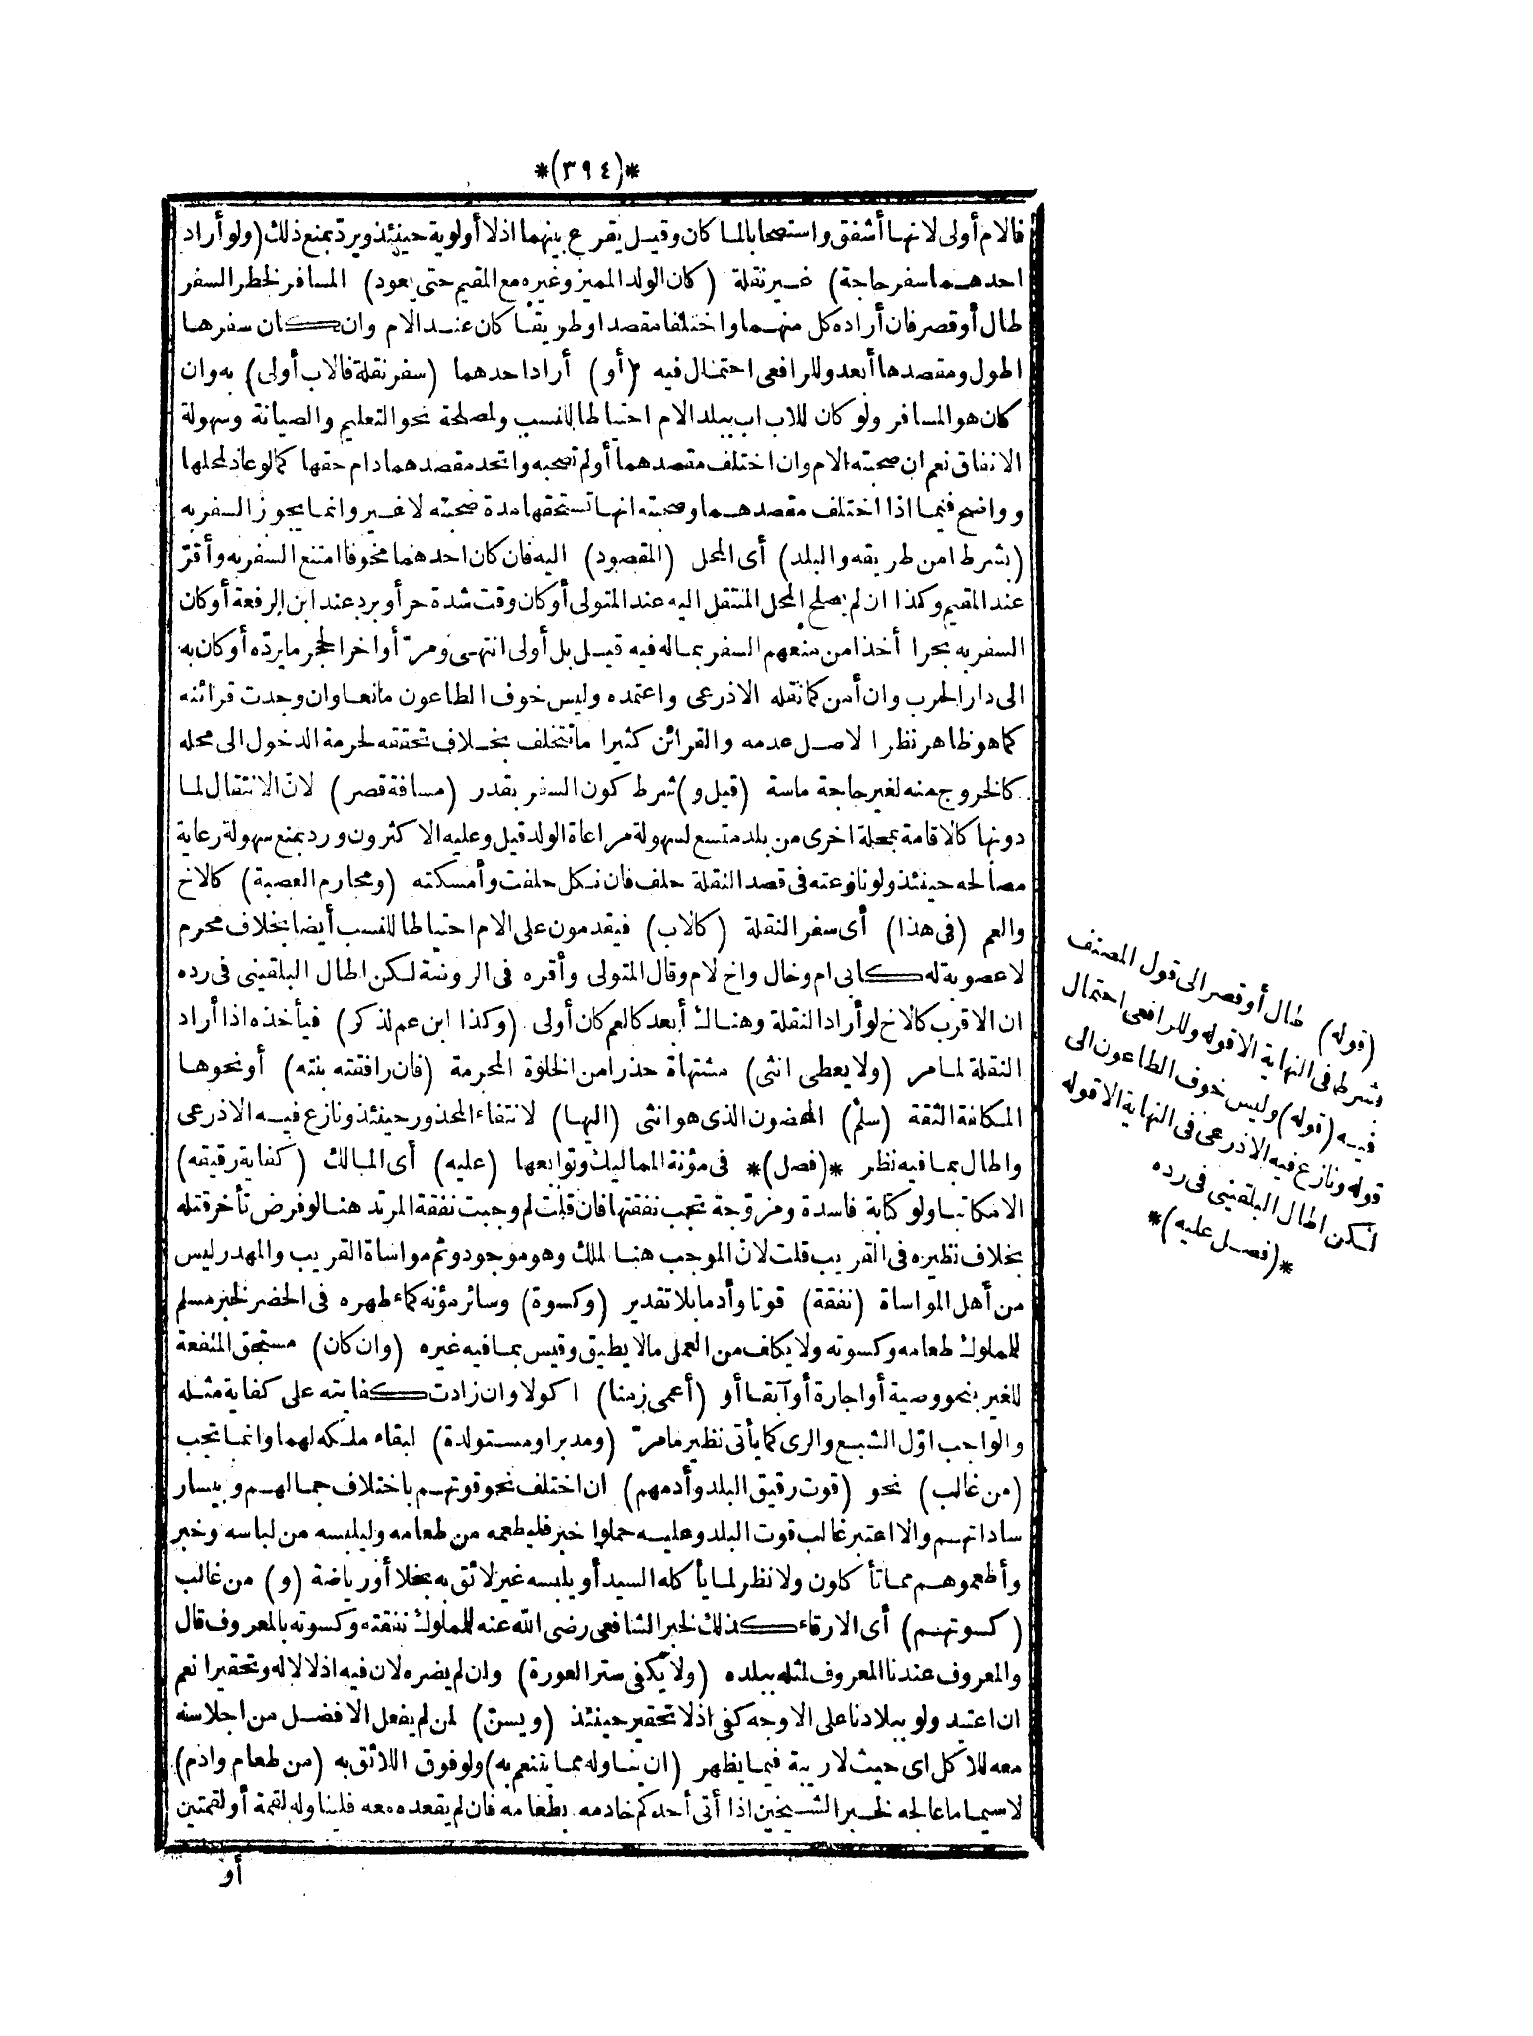 *(٣٩٤)*
فالام أولى لانها أشفق واستصحابا لما كان وقيل يقرع بينهما اذ لا أولوية حينئذ ويردّ بمنع ذلك (ولو أراد
احدهما سفر حاجة) غير نقلة (كان الولد المميز وغيره مع المقيم حتى يعود) المسافر لخطر السفر
طال أو قصر فان أراده كل منهما واختلفا مقصدا وطريقا كان عند الام وان كان سفرها
اطول ومقصدها أبعد وللرافعى احتمال فيه (أو) أراد احدهما (سفر نقلة فالاب أولى) به وان
كان هو المسافر ولو كان للاب اب ببلد الام احتياطا للنسب ولمصلحة نحو التعليم والصيانة وسهولة
الانفاق نعم ان صحبته الام وان اختلف مقصدهما أو لم تصحبه واتحد مقصدهما دام حقها كما لو عاد لمحلها
وواضح فيما اذا اختلف مقصدهما وصحبته انها تستحقها مدة صحبته لا غير وانما يجوز السفر به
(بشرط امن طريقه والبلد) أى المحل (المقصود) اليه فان كان احدهما مخوفا امتنع السفر به وأقرّ
عند المقيم وكذا ان لم يصلح المحل المنتقل اليه عند المتولى أو كان وقت شدة حر أو برد عند ابن الرفعة أو كان
السفر به بحرا أخذا من منعهم السفر بماله فيه قيل بل أولى انتهى ومرّ أواخر الحجر ما يردّه أو كان به
الى دار الحرب وان أمن كما نقله الاذرعى واعتمده وليس خوف الطاعون مانعا وان وجدت قرائنه
كما هو ظاهر نظرا لاصل عدمه والقرائن كثيرا ما تتخلف بخلاف تحققه لحرمة الدخول الى محله
كالخروج منه لغير حاجة ماسة (قيل و) شرط كون السفر بقدر (مسافة قصر) لانّ الانتقال لما
دونها كالاقامة بمحلة اخرى من بلد متسع لسهولة مراعاة الولد قيل وعليه الاكثرون ورد بمنع سهولة رعاية
مصالحه حينئذ ولو نازعته فى قصد النقلة حلف فان نكل حلفت وأمسكته (ومحارم العصبة) كالاخ
والعم (فى هذا) أى سفر النقلة (كالاب) فيقدمون على الام احتياطا للنسب أيضا بخلاف محرم
لا عصوبة له كابى ام وخال واخ لام وقال المتولى وأقره فى الروضة لكن اطال البلقينى فى رده
ان الاقرب كالاخ لو أراد النقلة وهناك أبعد كالعم كان أولى (وكذا ابن عم لذكر) فيأخذه اذا أراد
النقلة لما مر (ولا يعطى انثى) مشتهاة حذرا من الخلوة المحرمة (فان رافقته بنته) أو نحوها
المكافة الثقة (سلم) المحضون الذى هو انثى (اليها) لانتفاء المحذور حينئذ ونازع فيه الاذرعى
واطال بما فيه نظر *(فصل)* فى مؤنة المماليك وتوابعها (عليه) أى المالك (كفاية رقيقه)
الا مكاتبا ولو كتابة فاسدة ومزوّجة تجب نفقتها فان قلت لم وجبت نفقة المرتد هنا لو فرض تأخر قتله
بخلاف نظيره فى القريب قلت لانّ الموجب هنا الملك وهو موجود وثم مواساة القريب والمهدر ليس
من أهل المواساة (نفقة) قوتا وأدما بلا تقدير (وكسوة) وسائر مؤنه كماء طهره فى الحضر لخبر مسلم
للمملوك طعامه وكسوته ولا يكلف من العمل ما لا يطيق وقيس بما فيه غيره (وان كان) مستحق المنفعة
للغير بنحو وصية أو اجارة أو آبقا أو (أعمى زمنا) اكولا وان زادت كفايته على كفاية مثله
والواجب اوّل الشبع والرى كما يأتى نظير ما مرّ (ومدبرا ومستولدة) لبقاء ملكه لهما وانما تجب
(من غالب) نحو (قوت رقيق البلد وأدمهم) ان اختلف نحو قوتهم باختلاف جمالهم وبيسار
ساداتهم والا اعتبر غالب قوت البلد وعليه حملوا خبر فليطعمه من طعامه وليلبسه من لباسه وخبر
وأطعموهم مما تأكلون ولا نظر لما يأكله السيد أو يلبسه غير لائق به بخلا أو رياضة (و) من غالب
(كسوتهم) أى الارقاء كذلك لخبر الشافعى رضى الله عنه للمملوك نفقته وكسوته بالمعروف قال
والمعروف عندنا المعروف لمثله ببلده (ولا يكفى ستر العورة) وان لم يضره لان فيه اذلالا له وتحقيرا نعم
ان اعتيد ولو ببلادنا على الاوجه كفى اذ لا تحقير حينئذ (ويسنّ) لمن لم يفعل الافضل من اجلاسه
معه للاكل اى حيث لا ريبة فيما يظهر (ان يناوله مما يتنعم به) ولو فوق اللائق به (من طعام وادم)
لاسيما ما عالجه لخبر الشيخين اذا أتى أحدكم خادمه بطعامه فان لم يقعده معه فليناوله لقمة أو لقمتين
أو
(قوله) طال أو قصر الى قول المصنف
بشرط فى النهاية الا قوله وللرافعى احتمال
فيه (قوله) وليس خوف الطاعون الى
قوله ونازع فيه الاذرعى فى النهاية الا قوله
لكن اطال البلقينى فى رده
*(فصل عليه)*